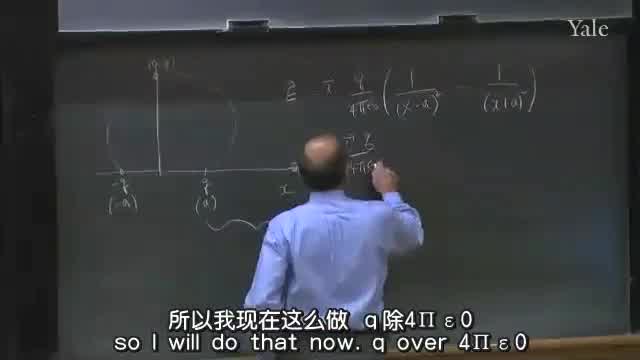 Yale
E = i q/4πε0 ( 1/(x-a)² - 1/(x+a)² )
i q
4πε
-q q x
(-a) (a)
所以我现在这么做 q除4Πε0
so I will do that now. q over 4Π ε0